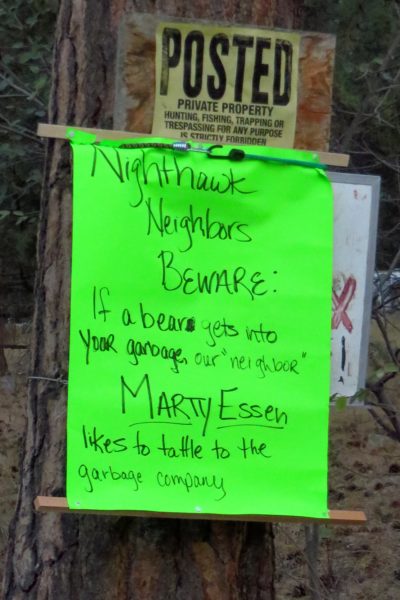 POSTED
PRIVATE PROPERTY
HUNTING, FISHING, TRAPPING OR
TRESPASSING FOR ANY PURPOSE
IS STRICTLY FORBIDDEN
Nighthawk
Neighbors
BEWARE:
If a bear gets into
your garbage, our "neighbor"
MARTY ESSEN
likes to tattle to the
garbage company